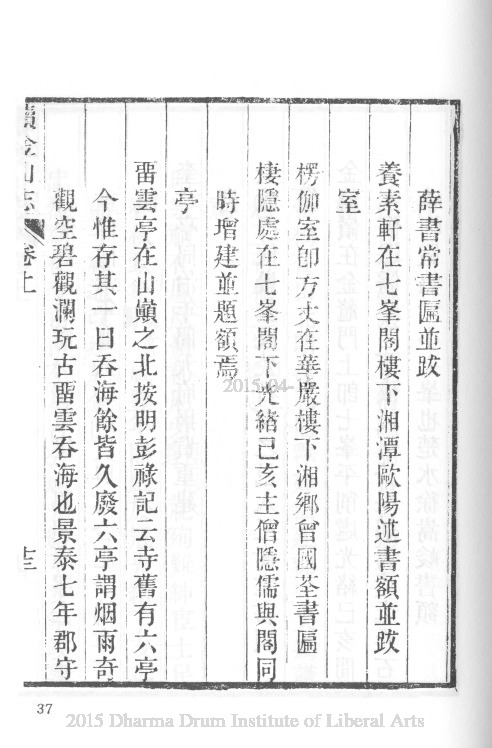 薛書常書匾並跋
養素軒在七峯閣樓下湘潭歐陽述書額並跋
室
楞伽室卽方丈在華嚴樓下湘鄉曾國荃書匾
棲隱處在七峯閣下光緒己亥主僧隱儒與閣同
時增建並題額焉
亭
畱雲亭在山巔之北按明彭祿記云寺舊有六亭
今惟存其一曰吞海餘皆久廢六亭謂烟雨奇
觀空碧觀瀾玩古畱雲吞海也景泰七年郡守
續金山志 卷上 十三
2015-04-
37
2015 Dharma Drum Institute of Liberal Arts